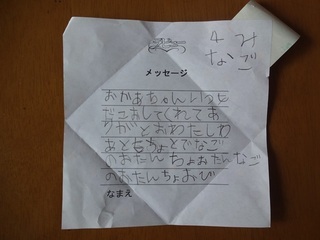 4み
なご
メッセージ
おかあちゃんいつも
だこおしてくれてあ
りがとおわたしわ
あともちょとでなご
のおたんちょおたんなご
のおたんちょおび
なまえ